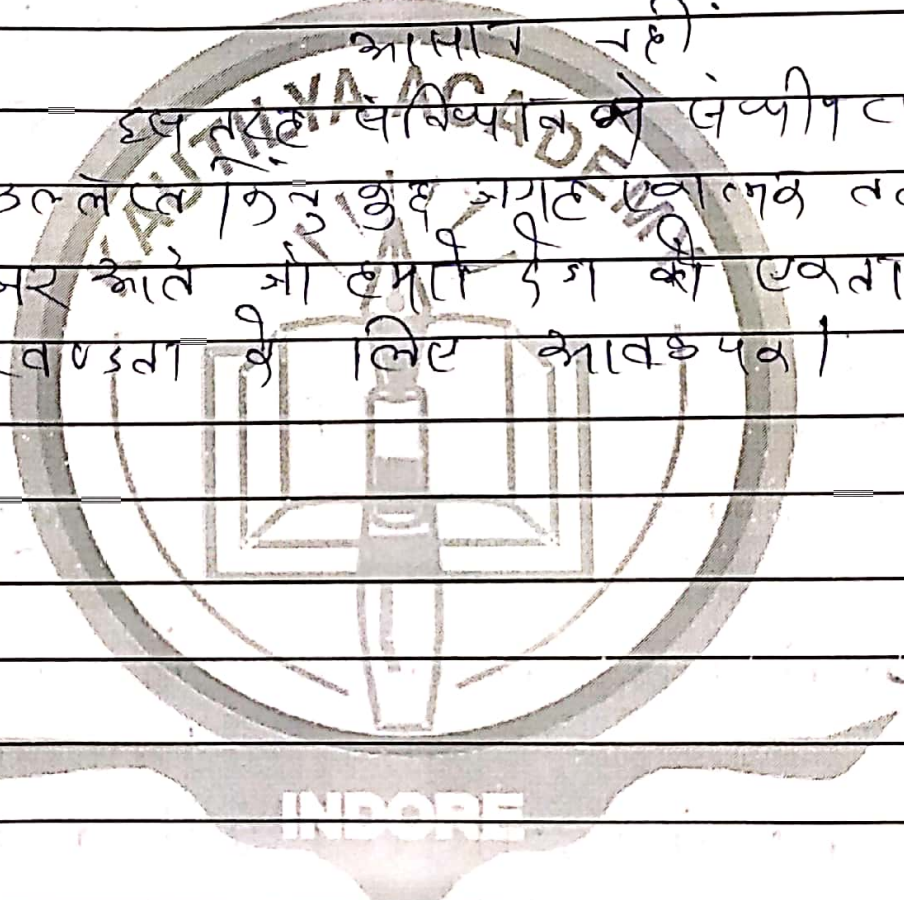 आसान नहीं
इस तरह संविधान को संघीय
उल्लेख किन्तु कुछ जगह एकात्मक
आते जो हमारे देश की एकता
लिए आवश्यक।
KAUTILYA ACADEMY
INDORE